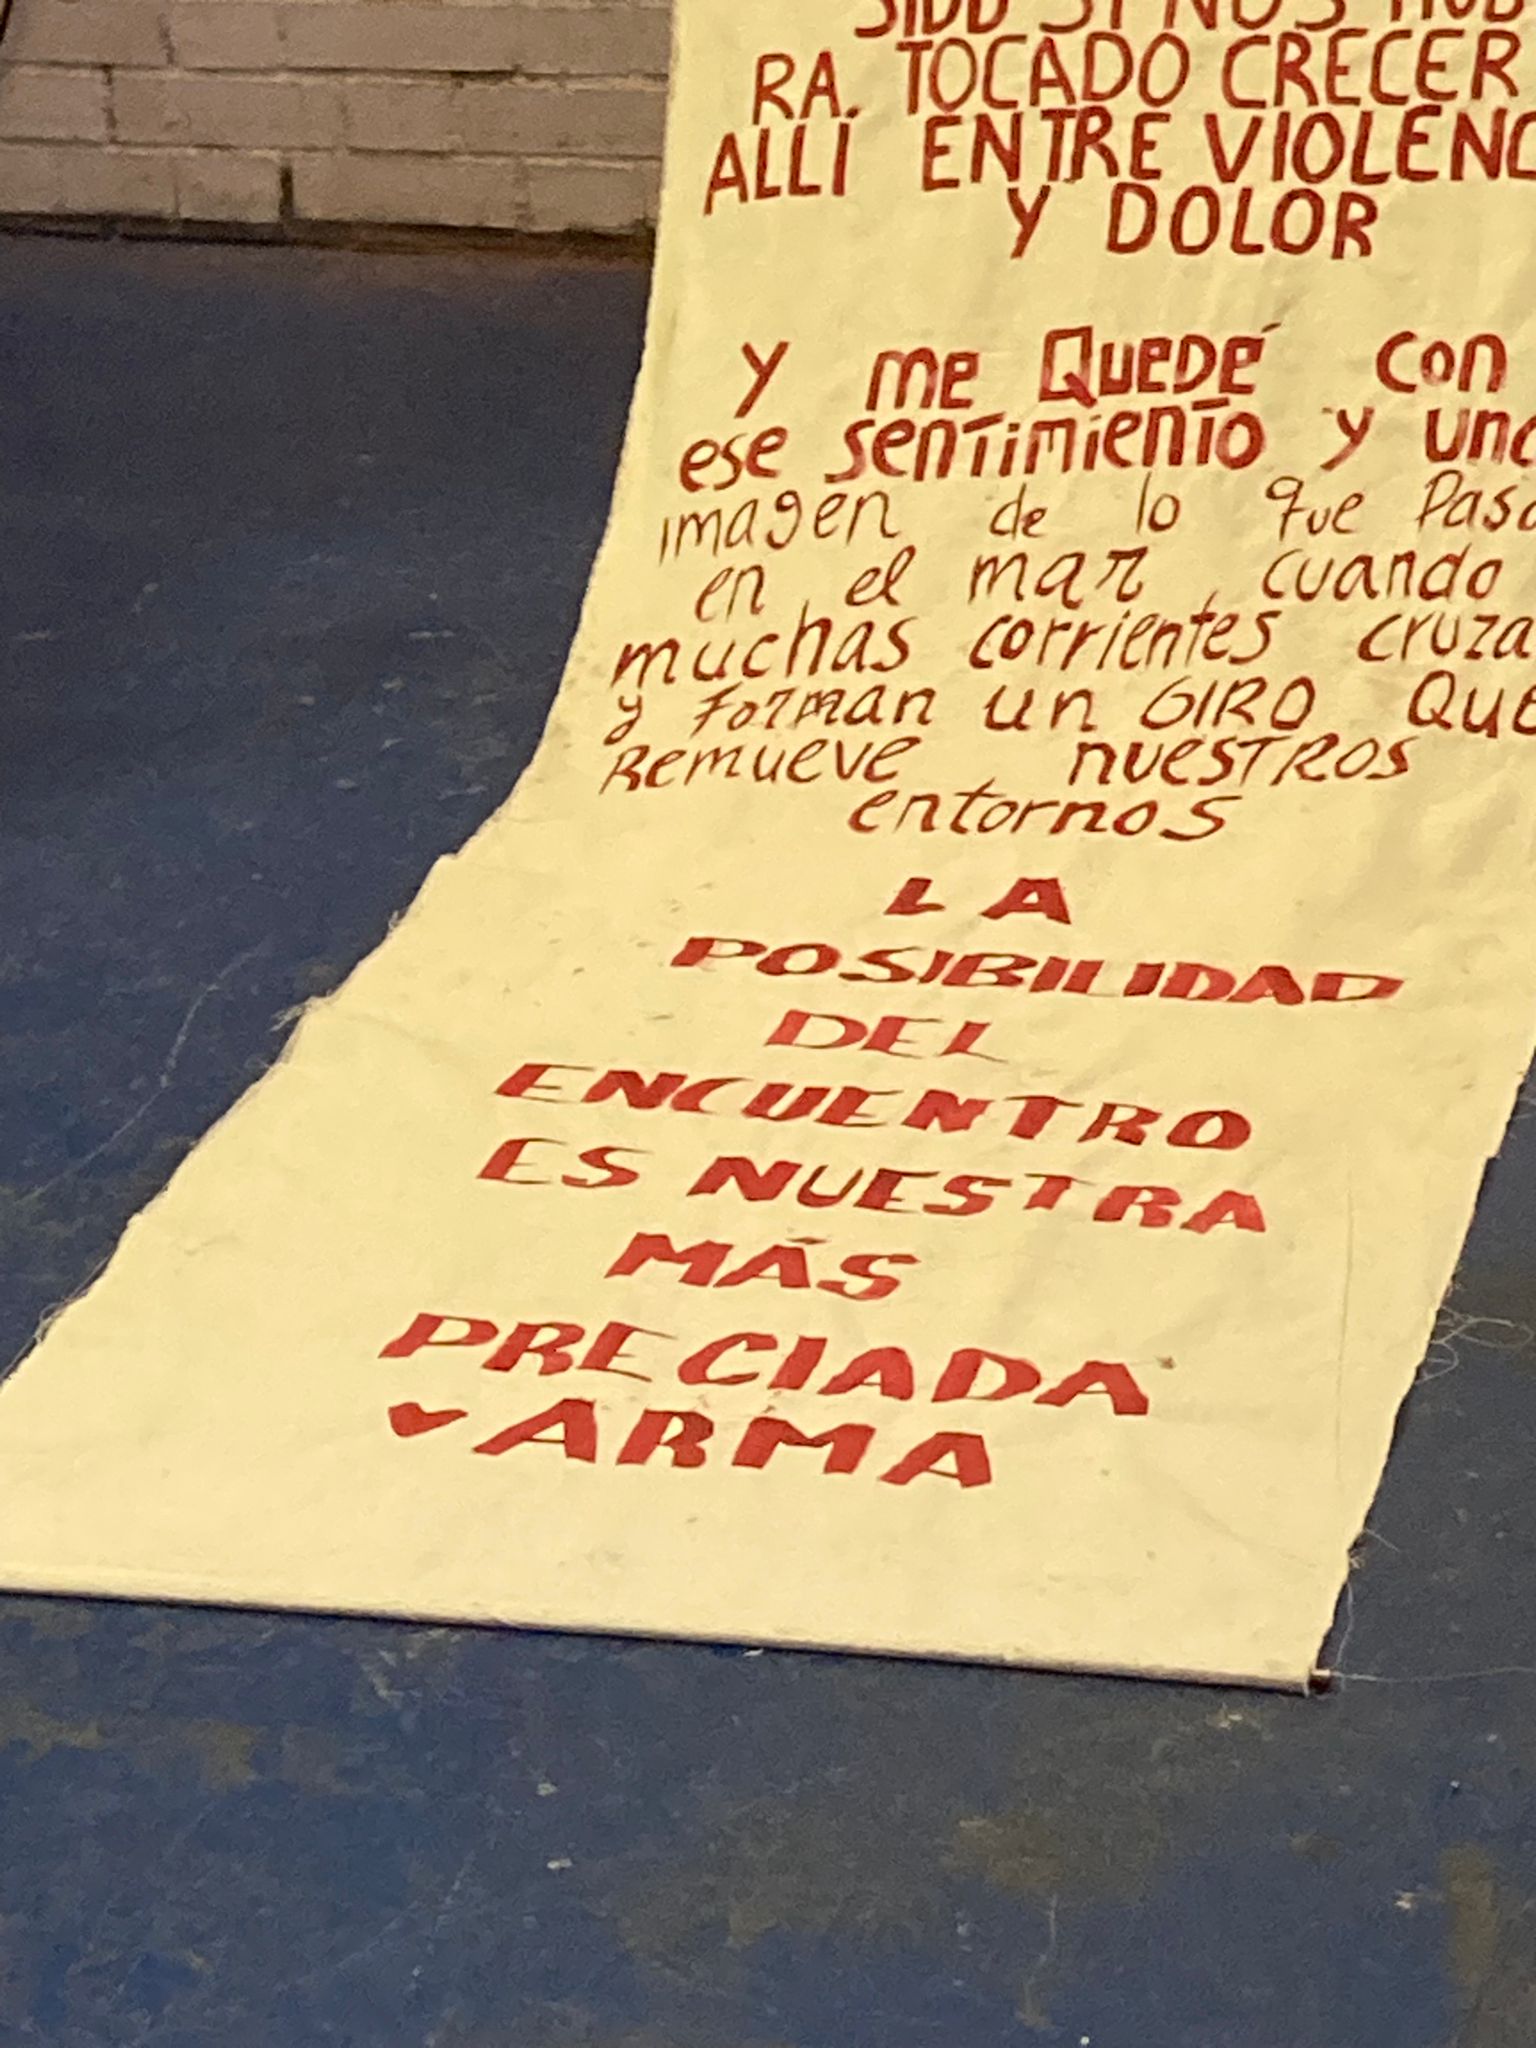 SIDO SI NOS HUB
RA TOCADO CRECER
ALLÍ ENTRE VIOLENC
Y DOLOR
Y me Quedé con
ese sentimiento y una
imagen de lo que Pasa
en el mar, cuando
muchas corrientes cruza
y forman un GIRO QUE
Remueve nuestros
entornos
LA
POSIBILIDAD
DEL
ENCUENTRO
ES NUESTRA
MÁS
PRECIADA
ARMA